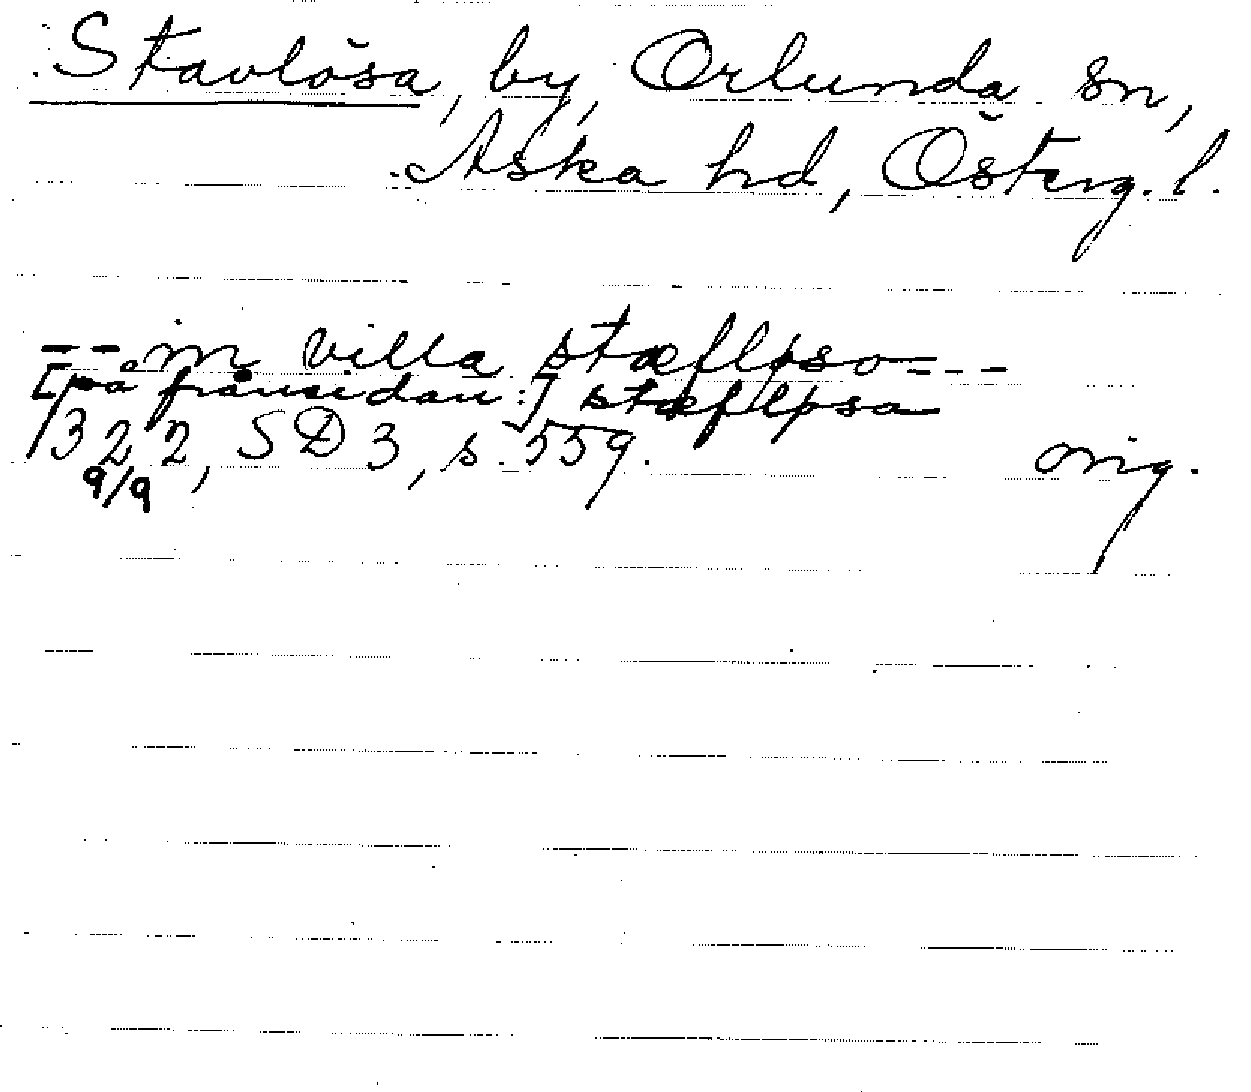 Stavlösa, by, Orlunda sn,
Aska hd, Österg. l.
--in villa stæfløso---
[på frånsidan:] stæfløsa
1322, SD 3, s. 559. orig.
9/9